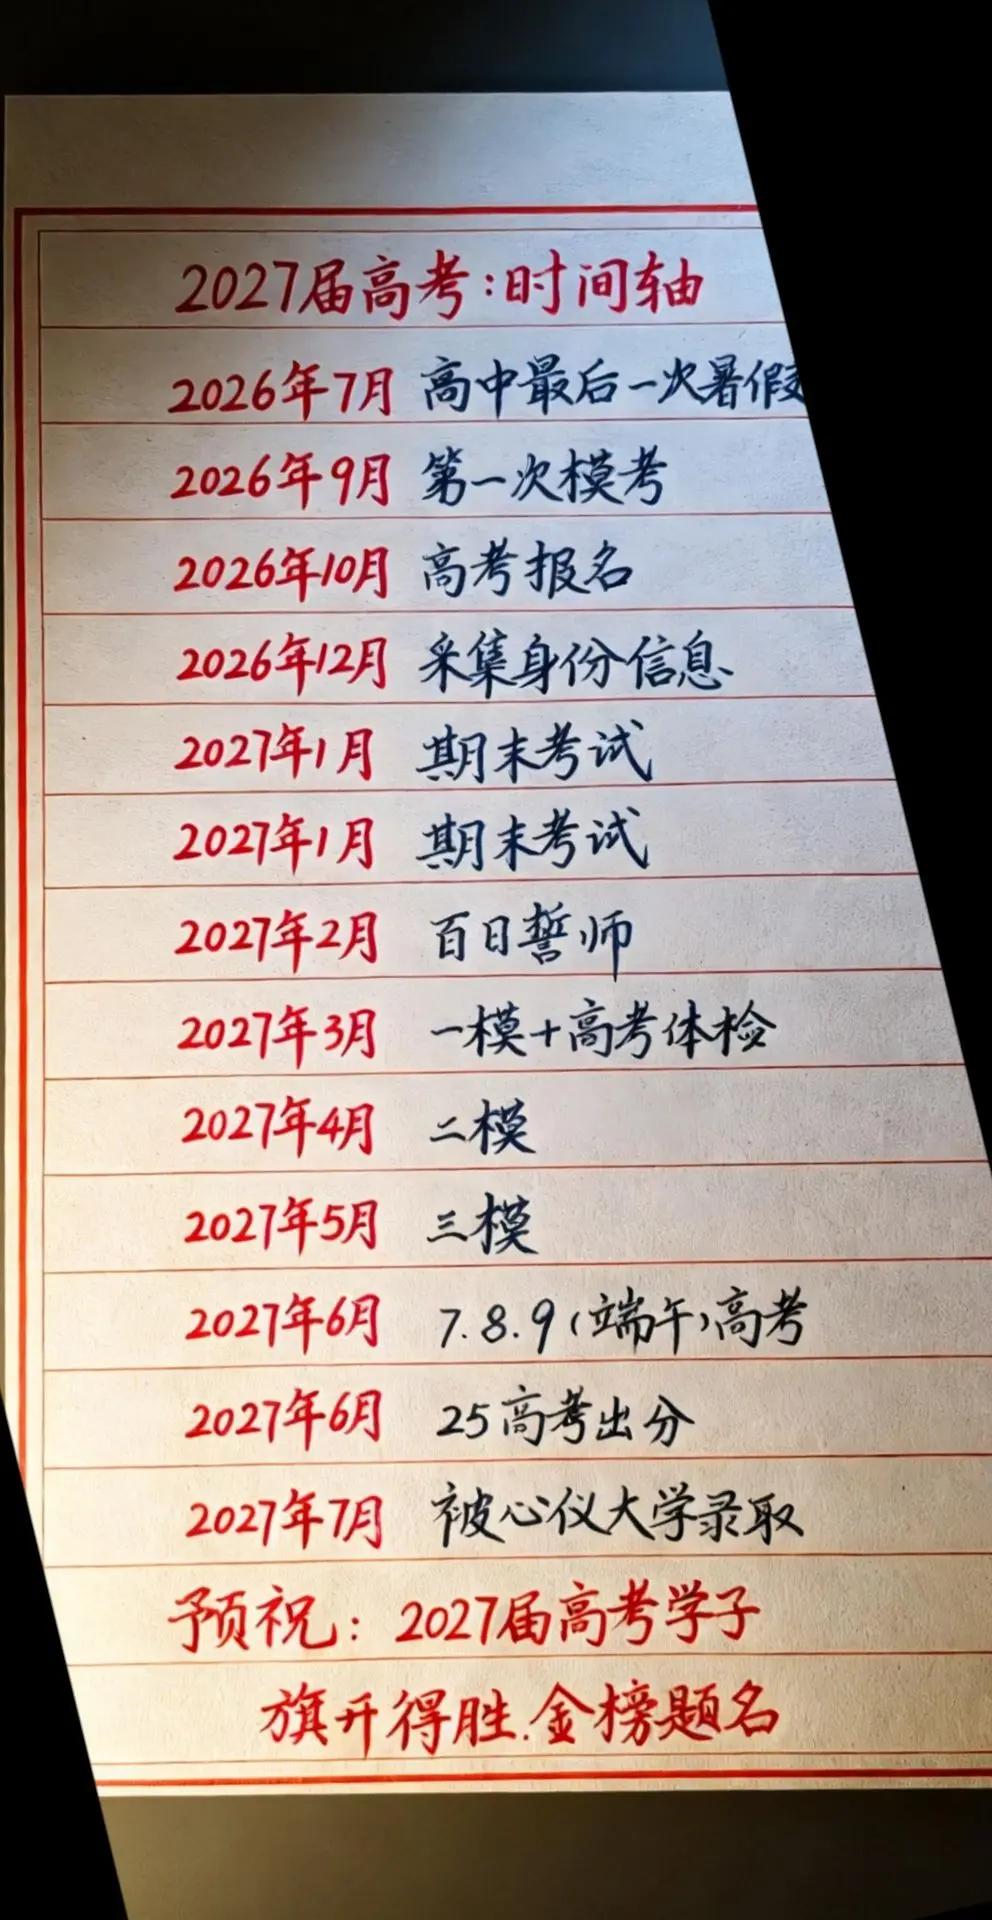 2027届高考:时间轴
2026年7月 高中最后一次暑假
2026年9月 第一次模考
2026年10月 高考报名
2026年12月 采集身份信息
2027年1月 期末考试
2027年1月 期末考试
2027年2月 百日誓师
2027年3月 一模+高考体检
2027年4月 二模
2027年5月 三模
2027年6月 7.8.9(端午)高考
2027年6月 25高考出分
2027年7月 被心仪大学录取
预祝:2027届高考学子
旗开得胜.金榜题名